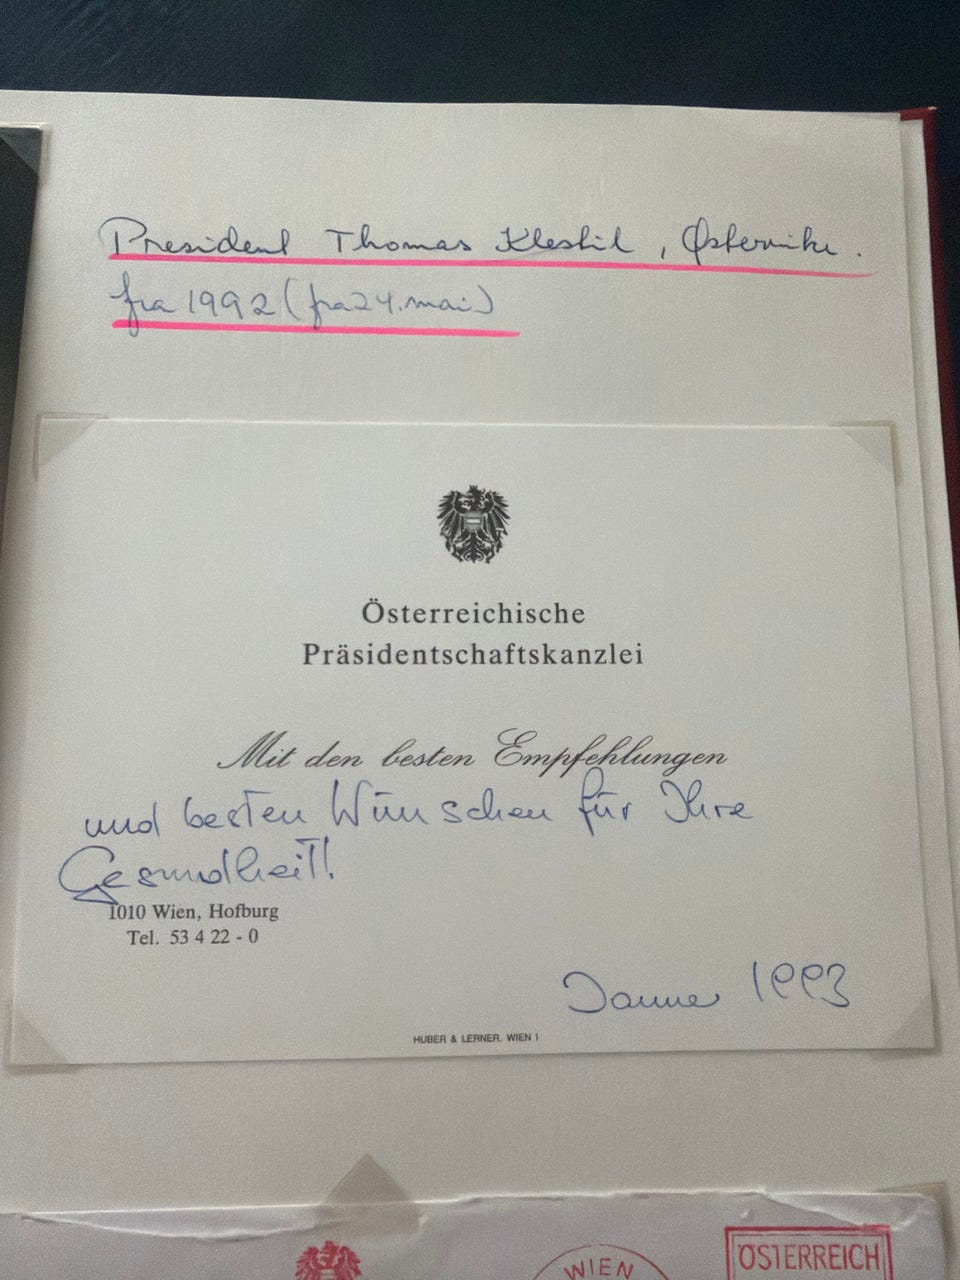 President Thomas Klestil, Østerrike.
fra 1992 (fra 24. mai)
Österreichische
Präsidentschaftskanzlei
Mit den besten Empfehlungen
und besten Wünschen für Ihre
Gesundheit!
1010 Wien, Hofburg
Tel. 53 4 22 - 0
Jänner 1993
HUBER & LERNER, WIEN I
WIEN
ÖSTERREICH